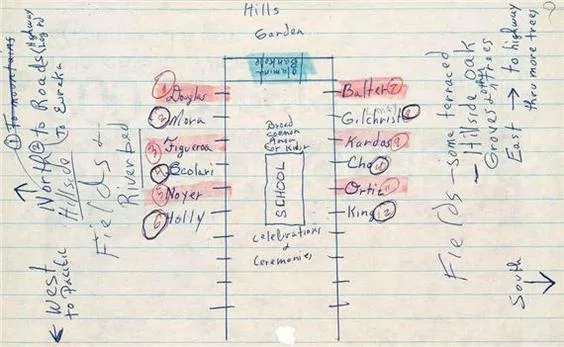 Hills
Garden
Douglas
2 Mora
3 Figueroa
4 Scolari
5 Noyer
6 Holly
Broad
common
Area
for kids
SCHOOL
Celebrations
&
Ceremonies
Balter 7
Gilchrist 8
Kardos 9
Cho
Ortiz 11
King 12
① to mountains
North ② to Roads
to Eureka
Hillside
Fields &
Riverbed
West
to Pacific
Fields - some terraced
- Hillside oak
Groves & other trees
East → to highway
thru more trees
South